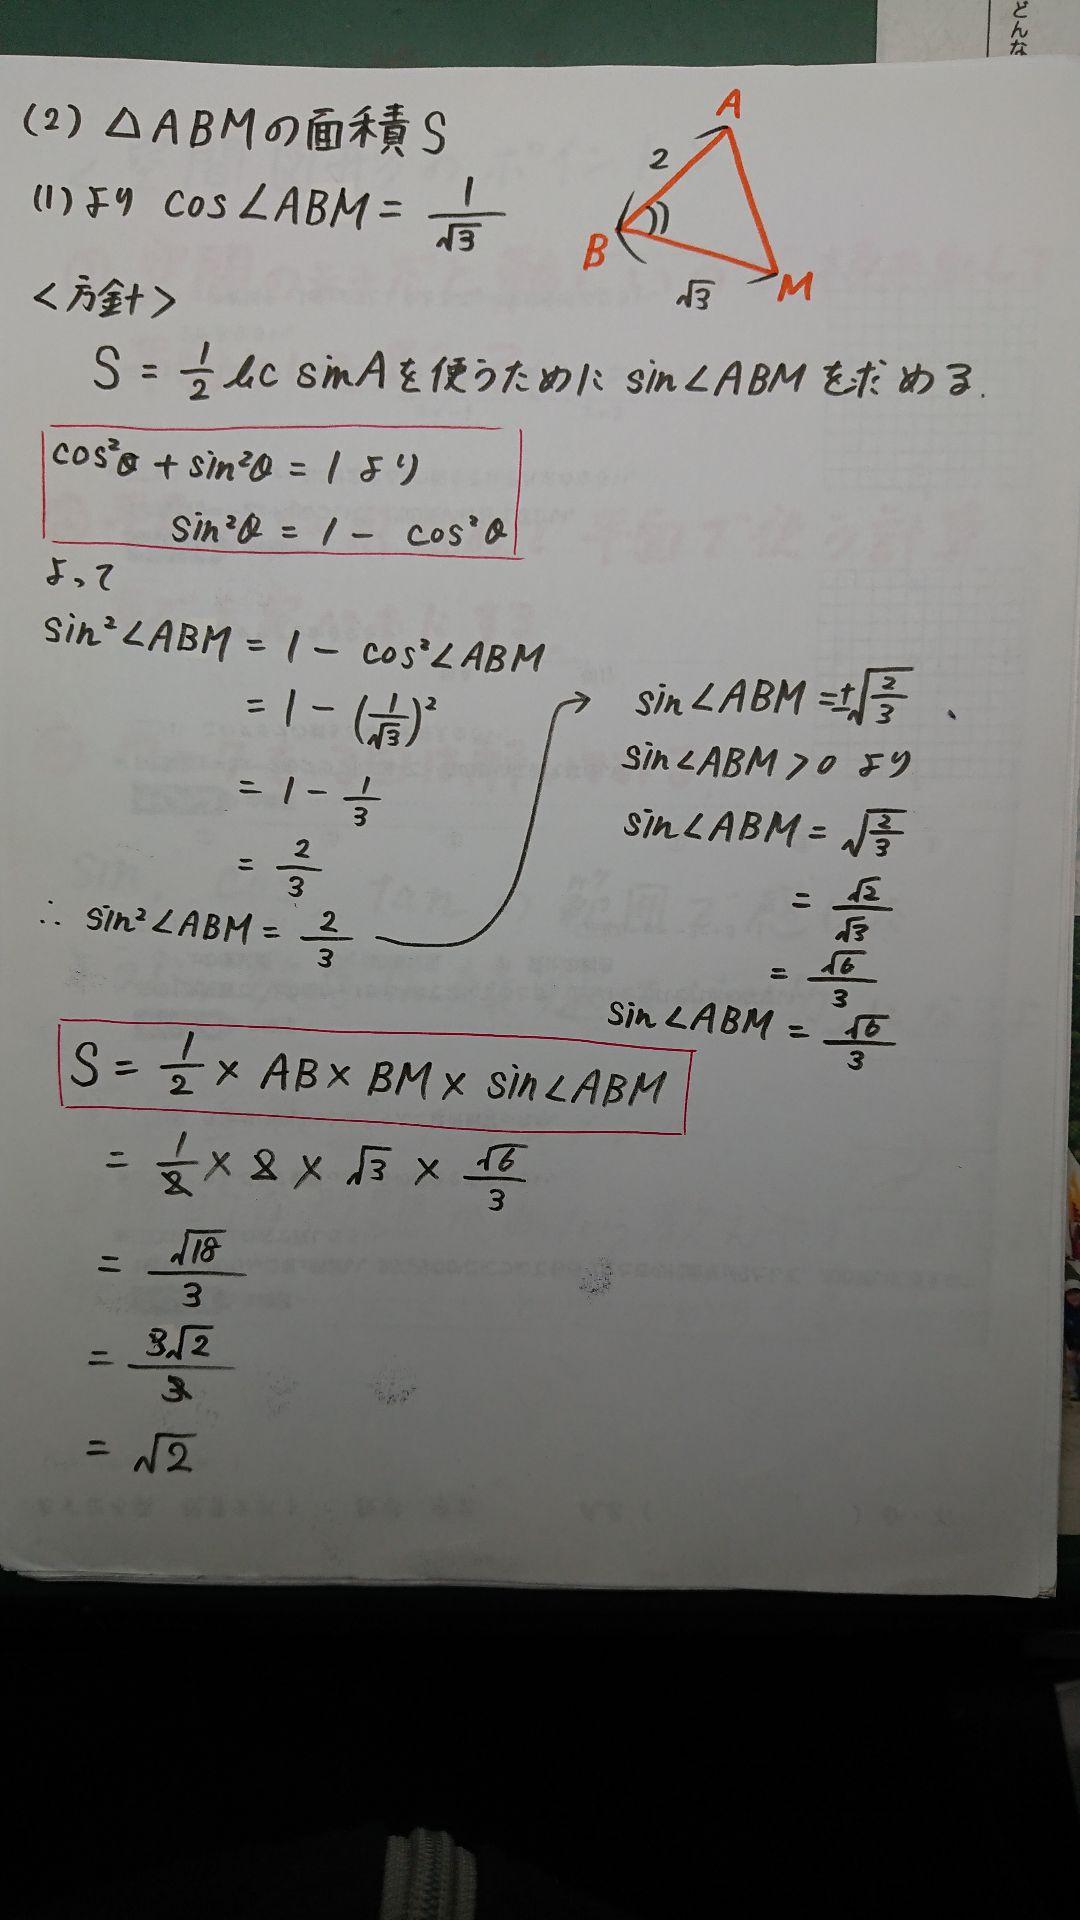 どんな
(2) △ABMの面積S
(1)より cos∠ABM = 1/√3
A
2
B
√3
M
<方針>
S = 1/2 bc sinAを使うために sin∠ABMを求める.
cos²θ + sin²θ = 1 より
sin²θ = 1 - cos²θ
よって
sin²∠ABM = 1 - cos²∠ABM
= 1 - (1/√3)²
= 1 - 1/3
= 2/3
∴ sin²∠ABM = 2/3
sin∠ABM = ±√(2/3)
sin∠ABM > 0 より
sin∠ABM = √(2/3)
= √2/√3
= √6/3
sin∠ABM = √6/3
S = 1/2 × AB × BM × sin∠ABM
= 1/2 × 2 × √3 × √6/3
= √18/3
= 3√2/3
= √2